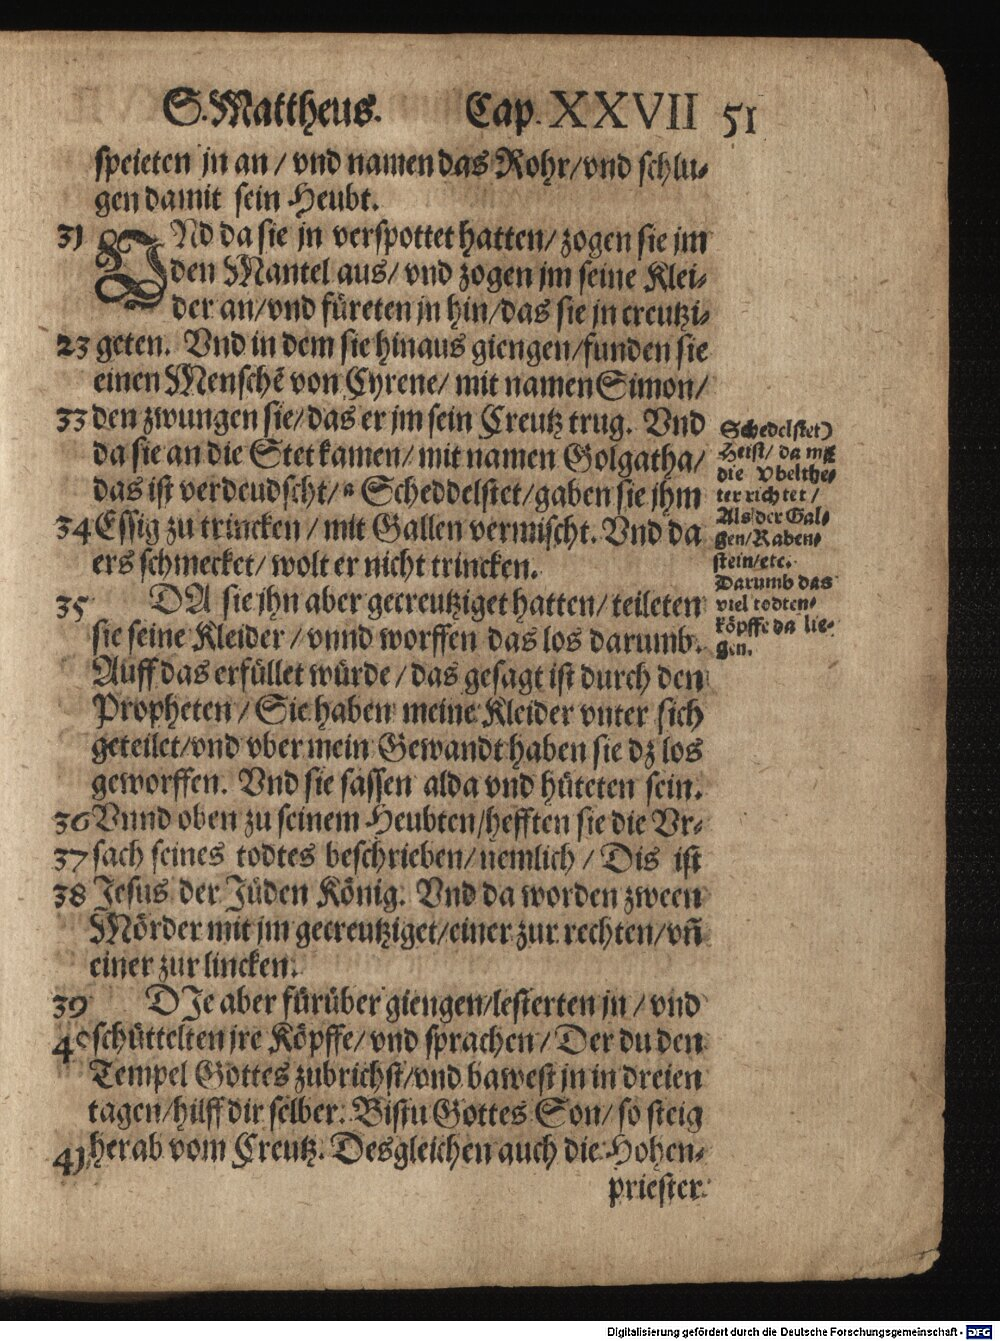 S. Mattheus. Cap. XXVII 51
speieten jn an / vnd namen das Rohr / vnd schlu⸗
gen damit sein Heubt.
31 VNd da sie jn verspottet hatten / zogen sie jm
den Mantel aus / vnd zogen jm seine Klei⸗
der an / vnd füreten jn hin / das sie jn creutzi⸗
23 geten. Vnd in dem sie hinaus giengen / funden sie
einen Menschē von Cyrene / mit namen Simon /
33 den zwungen sie / das er jm sein Creutz trug. Vnd
da sie an die Stet kamen / mit namen Golgatha /
das ist verdeudscht / a Scheddelstet / gaben sie jhm
34 Essig zu trincken / mit Gallen vermischt. Vnd da
ers schmecket / wolt er nicht trincken.
35 DA sie jhn aber gecreutziget hatten / teileten
sie seine Kleider / vnnd worffen das los darumb.
Auff das erfüllet würde / das gesagt ist durch den
Propheten / Sie haben meine Kleider vnter sich
geteilet / vnd vber mein Gewandt haben sie dz los
geworffen. Vnd sie sassen alda vnd hüteten sein.
36 Vnnd oben zu seinem Heubten / hefften sie die Vr⸗
37 sach seines todtes beschrieben / nemlich / Dis ist
38 Jesus der Jüden König. Vnd da worden zween
Mörder mit jm gecreutziget / einer zur rechten / vn̄
einer zur lincken.
39 DIe aber fürüber giengen / lesterten jn / vnd
40 schüttelten jre Köpffe / vnd sprachen / Der du den
Tempel Gottes zubrichst / vnd bawest jn in dreien
tagen / hilff dir selber. Bistu Gottes Son / so steig
41 herab vom Creutz. Desgleichen auch die Hohen⸗
priester
Schedelstet)
Heist / da mā
die Vbelthe⸗
ter richtet /
Als der Gal⸗
gen / Raben⸗
stein / etc.
Darumb das
viel todten⸗
köpffe da lie⸗
gen.
Digitalisierung gefördert durch die Deutsche Forschungsgemeinschaft - DFG